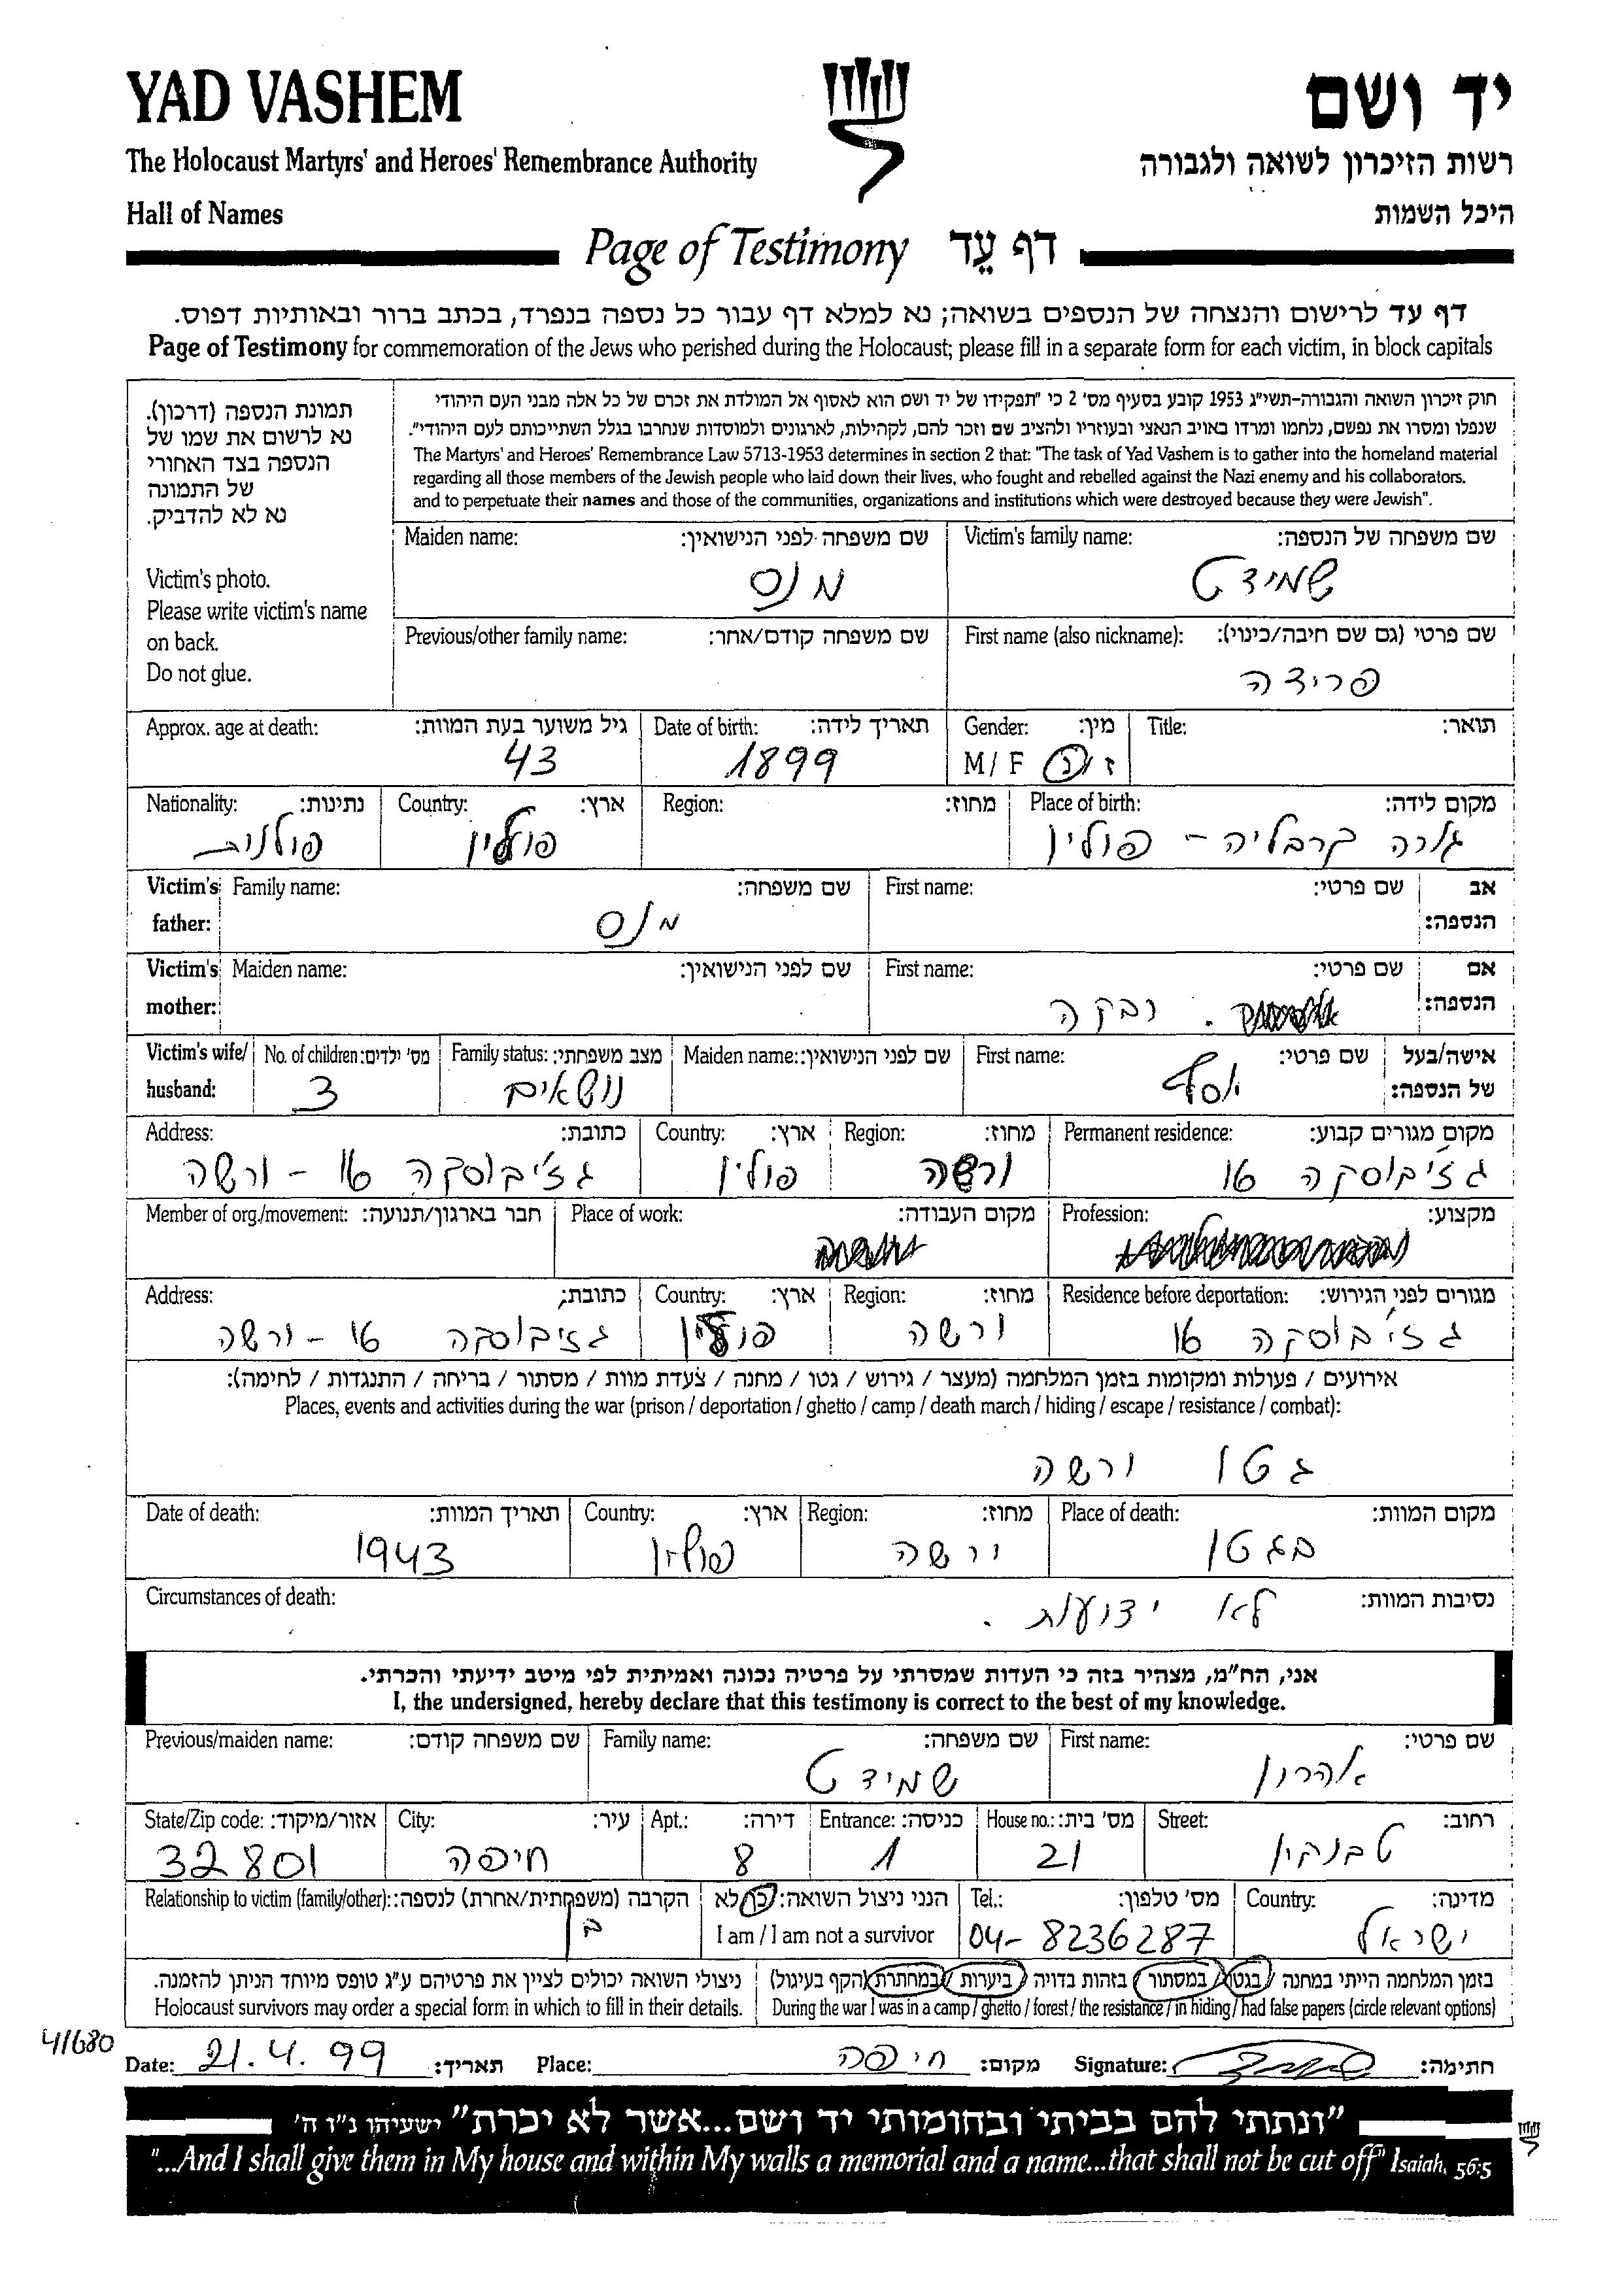 YAD VASHEM
יד ושם
The Holocaust Martyrs' and Heroes' Remembrance Authority
רשות הזיכרון לשואה ולגבורה
Hall of Names
היכל השמות
Page of Testimony דף עֵד
דף עד לרישום והנצחה של הנספים בשואה; נא למלא דף עבור כל נספה בנפרד, בכתב ברור ובאותיות דפוס.
Page of Testimony for commemoration of the Jews who perished during the Holocaust; please fill in a separate form for each victim, in block capitals
תמונת הנספה (דרכון).
נא לרשום את שמו של
הנספה בצד האחורי
של התמונה
נא לא להדביק.
Victim's photo.
Please write victim's name
on back.
Do not glue.
חוק זיכרון השואה והגבורה-תשי"ג 1953 קובע בסעיף מס' 2 כי "תפקידו של יד ושם הוא לאסוף אל המולדת את זכרם של כל אלה מבני העם היהודי
שנפלו ומסרו את נפשם, נלחמו ומרדו באויב הנאצי ובעוזריו ולהציב שם וזכר להם, לקהילות, לארגונים ולמוסדות שנחרבו בגלל השתייכותם לעם היהודי".
The Martyrs' and Heroes' Remembrance Law 5713-1953 determines in section 2 that: "The task of Yad Vashem is to gather into the homeland material
regarding all those members of the Jewish people who laid down their lives, who fought and rebelled against the Nazi enemy and his collaborators,
and to perpetuate their names and those of the communities, organizations and institutions which were destroyed because they were Jewish".
Victim's family name: שם משפחה של הנספה:
שמידט
Maiden name: שם משפחה לפני הנישואין:
מנס
First name (also nickname): שם פרטי (גם שם חיבה/כינוי):
פרידה
Previous/other family name: שם משפחה קודם/אחר:
Title: תואר:
Gender: מין:
M / F ז / נ
Date of birth: תאריך לידה:
1899
Approx. age at death: גיל משוער בעת המוות:
43
Place of birth: מקום לידה:
גורה קלבליה - פולין
Region: מחוז:
Country: ארץ:
פולין
Nationality: נתינות:
פולנית
Victim's father: אב הנספה:
First name: שם פרטי:
Family name: שם משפחה:
מנס
Victim's mother: אם הנספה:
First name: שם פרטי:
רבקה
Maiden name: שם לפני הנישואין:
Victim's wife/ husband: אישה/בעל של הנספה:
First name: שם פרטי:
יוסף
Maiden name: שם לפני הנישואין:
Family status: מצב משפחתי:
נושאים
No. of children: מס' ילדים:
3
Permanent residence: מקום מגורים קבוע:
גז'יבוסקה 16
Region: מחוז:
ורשה
Country: ארץ:
פולין
Address: כתובת:
גז'יבוסקה 16 - ורשה
Profession: מקצוע:
Place of work: מקום העבודה:
Member of org./movement: חבר בארגון/תנועה:
Residence before deportation: מגורים לפני הגירוש:
גז'יבוסקה 16
Region: מחוז:
ורשה
Country: ארץ:
פולין
Address: כתובת:
גזיבוסקה 16 - ורשה
אירועים / פעולות ומקומות בזמן המלחמה (מעצר / גירוש / גטו / מחנה / צעדת מוות / מסתור / בריחה / התנגדות / לחימה):
Places, events and activities during the war (prison / deportation / ghetto / camp / death march / hiding / escape / resistance / combat):
גטו ורשה
Place of death: מקום המוות:
בגטו
Region: מחוז:
ורשה
Country: ארץ:
פולין
Date of death: תאריך המוות:
1943
Circumstances of death: נסיבות המוות:
לא ידועות.
אני, הח"מ, מצהיר בזה כי העדות שמסרתי על פרטיה נכונה ואמיתית לפי מיטב ידיעתי והכרתי.
I, the undersigned, hereby declare that this testimony is correct to the best of my knowledge.
First name: שם פרטי:
אהרון
Family name: שם משפחה:
שמידט
Previous/maiden name: שם משפחה קודם:
Street: רחוב:
טבנקין
House no.: מס' בית:
21
Entrance: כניסה:
1
Apt.: דירה:
8
City: עיר:
חיפה
State/Zip code: אזור/מיקוד:
32801
Country: מדינה:
ישראל
Tel.: מס' טלפון:
04-8236287
הנני ניצול השואה: כן/לא
I am / I am not a survivor
Relationship to victim (family/other): הקרבה (משפחתית/אחרת) לנספה:
בן
בזמן המלחמה הייתי במחנה / בגטו / במסתור / בזהות בדויה / ביערות / במחתרת (הקף בעיגול)
During the war I was in a camp / ghetto / forest / the resistance / in hiding / had false papers (circle relevant options)
ניצולי השואה יכולים לציין את פרטיהם ע"ג טופס מיוחד הניתן להזמנה.
Holocaust survivors may order a special form in which to fill in their details.
41680
Date: 21.4.99 תאריך: Place: חיפה מקום: Signature: חתימה:
"ונתתי להם בביתי ובחומותי יד ושם...אשר לא יכרת" ישעיהו נ"ו ה'
"...And I shall give them in My house and within My walls a memorial and a name...that shall not be cut off" Isaiah, 56:5